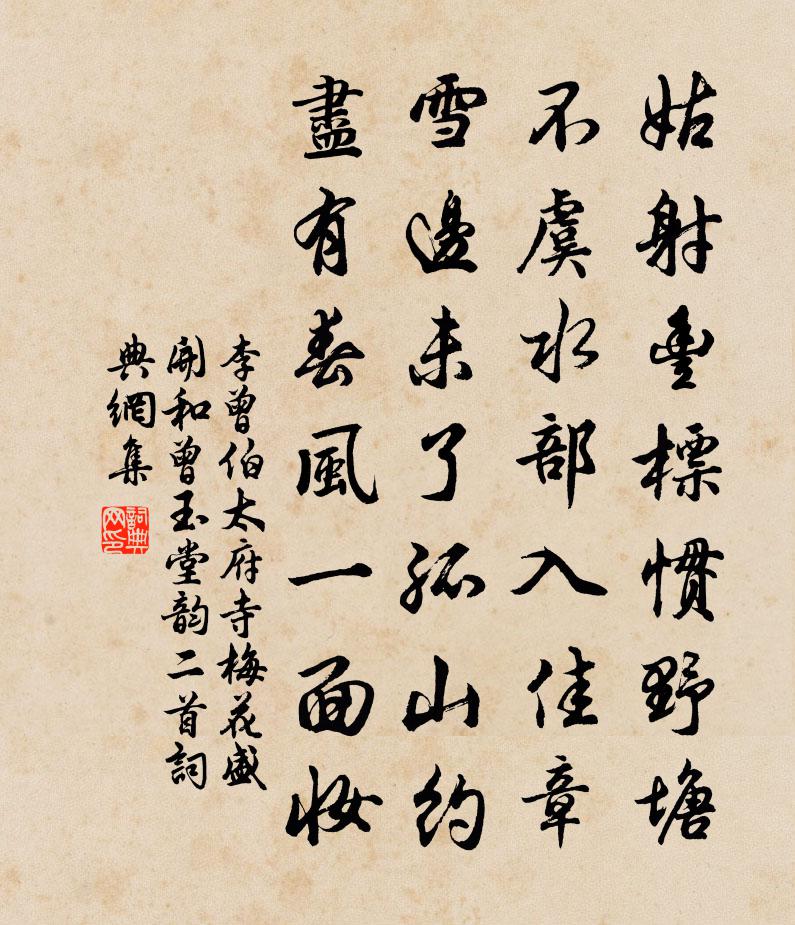 姑射豊標慣野塘
不虞水部入佳章
雪邊未了孤山約
盡有春風一面妝
李曾伯太府寺梅花盛
開和曾玉堂韵二首詞
典網集
詞典
网印